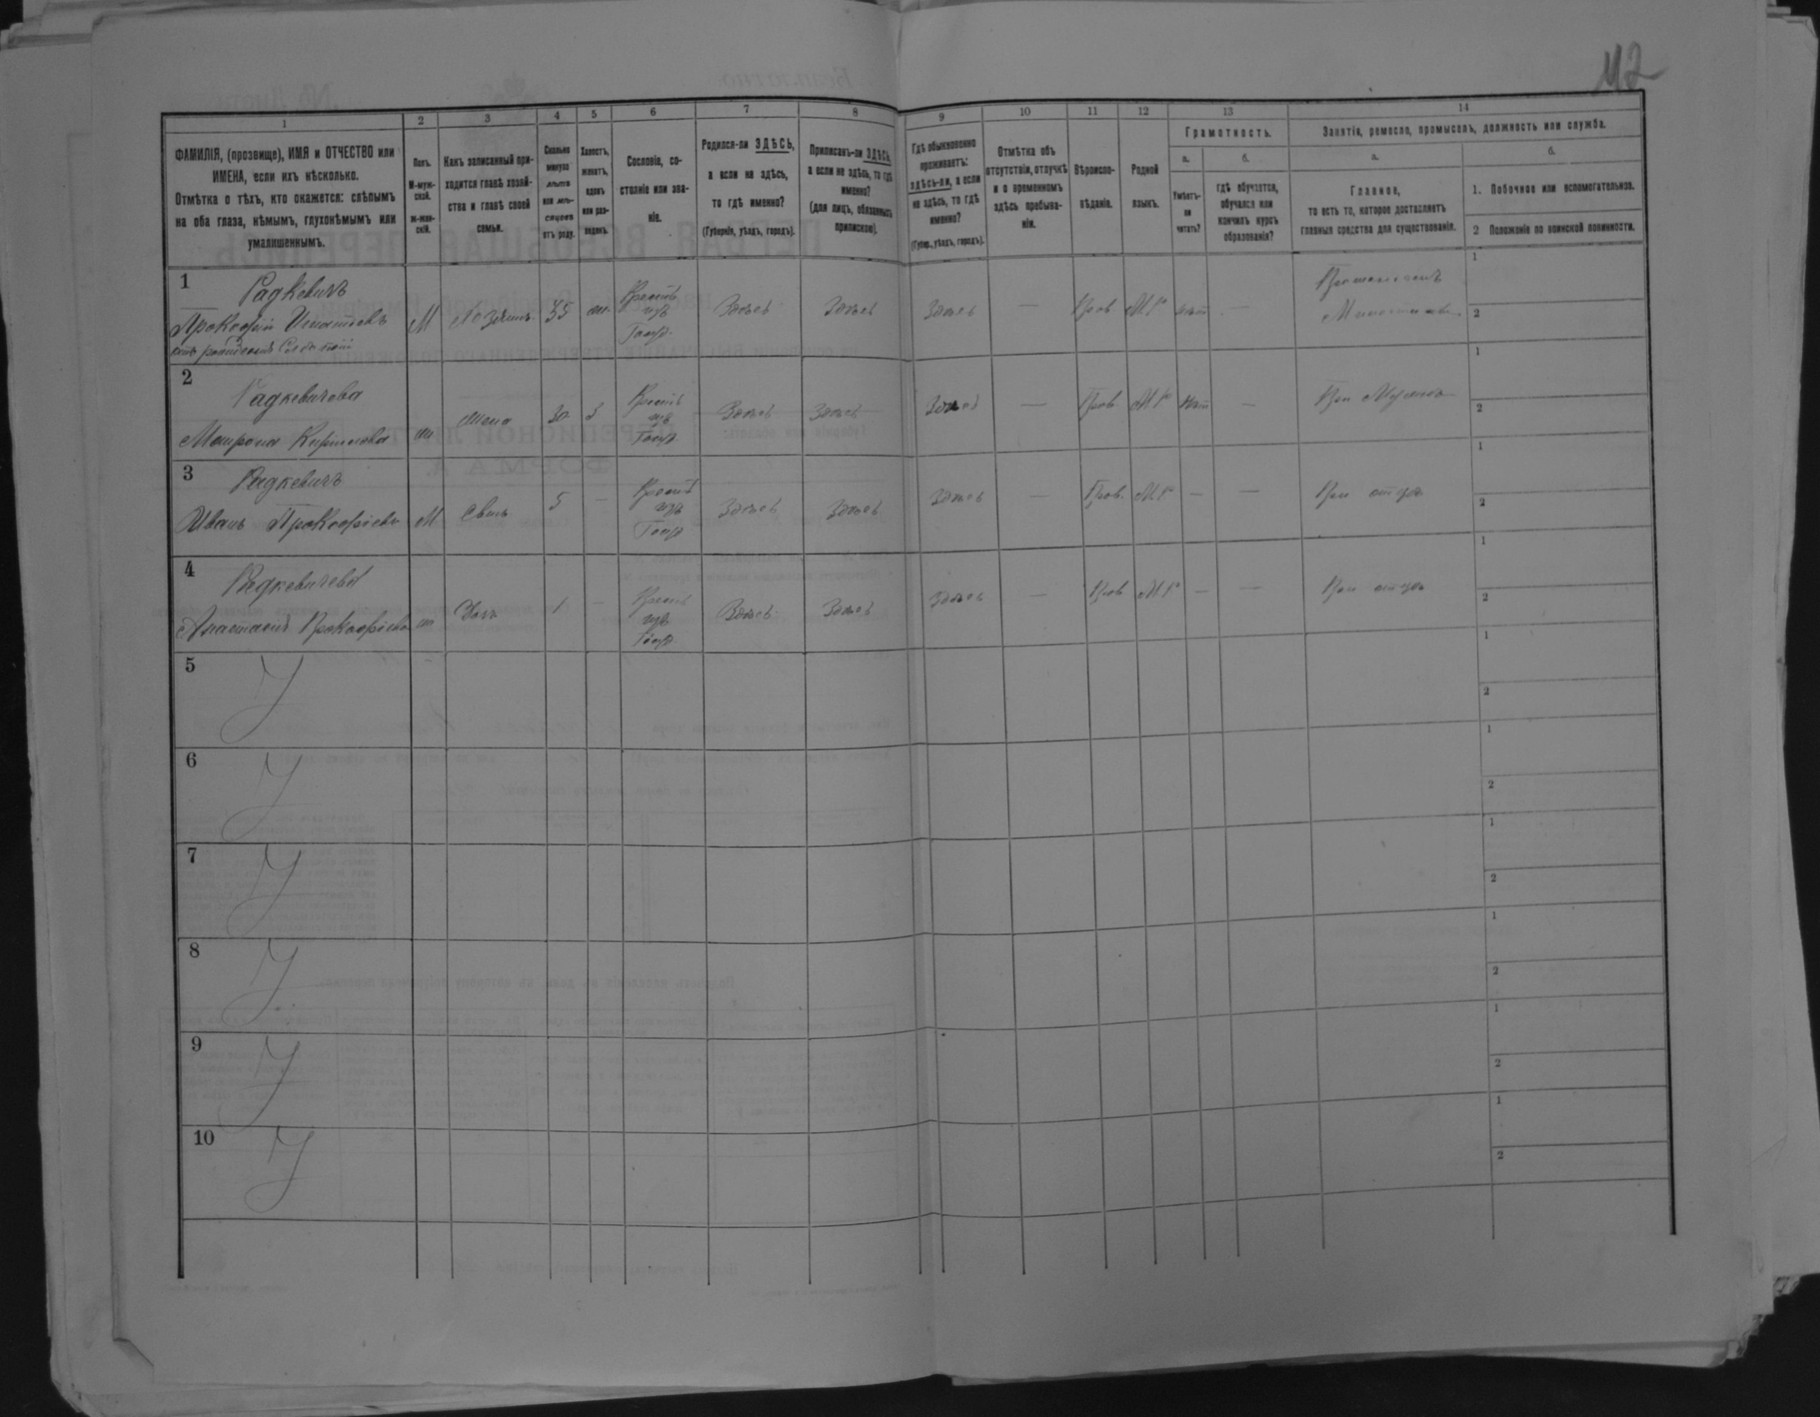 112
1 2 3 4 5 6 7 8 9 10 11 12 13 14
ФАМИЛІЯ, (прозвище), ИМЯ и ОТЧЕСТВО или
ИМЕНА, если ихъ нѣсколько.
Отмѣтка о тѣхъ, кто окажется: слѣпымъ
на оба глаза, нѣмымъ, глухонѣмымъ или
умалишеннымъ.
Полъ.
М-муж-
ской.
ж-жен-
скій.
Какъ записанный при-
ходится главѣ хозяй-
ства и главѣ своей
семьи.
Сколько
минуло
лѣтъ
или мѣ-
сяцевъ
отъ роду.
Холостъ,
женатъ,
вдовъ
или раз-
веденъ.
Сословіе, со-
стояніе или зва-
ніе.
Родился-ли ЗДѢСЬ,
а если не здѣсь,
то гдѣ именно?
(Губернія, уѣздъ, городъ).
Приписанъ-ли ЗДѢСЬ,
а если не здѣсь, то гдѣ
именно?
(для лицъ, обязанныхъ
припискою).
Гдѣ обыкновенно
проживаетъ:
здѣсь-ли, а если
не здѣсь, то гдѣ
именно?
(Губер., уѣздъ, городъ).
Отмѣтка объ
отсутствіи, отлучкѣ
и о временномъ
здѣсь пребыва-
ніи.
Вѣроиспо-
вѣданіе.
Родной
языкъ.
Грамотность.
а.
Умѣетъ-
ли
читать?
б.
гдѣ обучается,
обучался или
кончилъ курсъ
образованія?
Занятіе, ремесло, промыселъ, должность или служба.
а.
Главное,
то есть то, которое доставляетъ
главныя средства для существованія.
б.
1. Побочное или вспомогательное.
2 Положеніе по воинской повинности.
1
Радкевичъ
Прокофій Игнатіевъ
М
35
Здѣсь Здѣсь Здѣсь — Прав М Р нѣт —
1
2
2
Радкевичева
Матрона Кирилова
ж
жена
30
Здѣсь Здѣсь Здѣсь — Прав. М Р нѣт —
При мужѣ
1
2
3
Радкевичъ
Иванъ Прокофіевъ
М
сынъ
5
—
Здѣсь Здѣсь Здѣсь — Прав. М Р — —
При отцѣ
1
2
4
Радкевичева
Анастасія Прокофіева
ж
дочь
1
—
Здѣсь Здѣсь Здѣсь — Прав М Р — —
При отцѣ
1
2
5
1
2
6
1
2
7
1
2
8
1
2
9
1
2
10
1
2